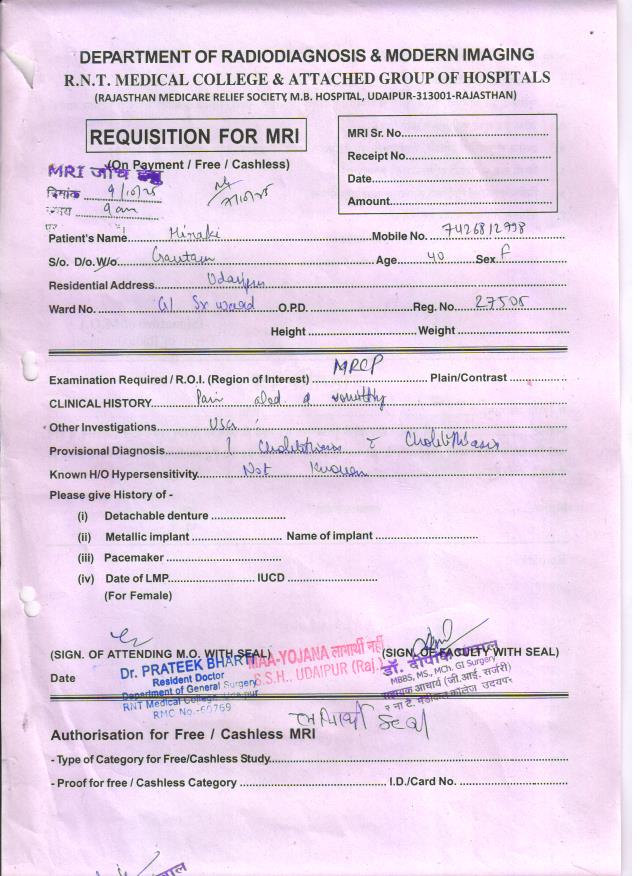 DEPARTMENT OF RADIODIAGNOSIS & MODERN IMAGING
R.N.T. MEDICAL COLLEGE & ATTACHED GROUP OF HOSPITALS
(RAJASTHAN MEDICARE RELIEF SOCIETY, M.B. HOSPITAL, UDAIPUR-313001-RAJASTHAN)
REQUISITION FOR MRI
(On Payment / Free / Cashless)
MRI जाँच हेतु
दिनांक 9/10/25
समय 9 am
MRI Sr. No.
Receipt No.
Date
Amount
Patient's Name Mobile No. 7426812998
S/o. D/o. W/o Gautam Age 40 Sex F
Residential Address Udaipur
Ward No. GI Sx ward O.P.D. Reg. No. 27505
Height Weight
Examination Required / R.O.I. (Region of Interest) MRCP Plain/Contrast
CLINICAL HISTORY Pain abd & vomiting
Other Investigations USG
Provisional Diagnosis ?
Known H/O Hypersensitivity Not Known
Please give History of -
(i) Detachable denture
(ii) Metallic implant Name of implant
(iii) Pacemaker
(iv) Date of LMP IUCD
(For Female)
(SIGN. OF ATTENDING M.O. WITH SEAL) (SIGN. OF FACULTY WITH SEAL)
Date
Dr. PRATEEK BHARTI
Resident Doctor
Department of General Surgery
RNT Medical College, Udaipur
RMC No.-60769
MAA-YOJANA लाभार्थी नहीं
S.S.H., UDAIPUR (Raj.)
डॉ. दीपक
MBBS, MS, MCh. GI Surgery
सहायक आचार्य (जी.आई. सर्जरी)
र ना टे. मेडीकल कॉलेज उदयपुर
Seal
Authorisation for Free / Cashless MRI
- Type of Category for Free/Cashless Study
- Proof for free / Cashless Category I.D./Card No.